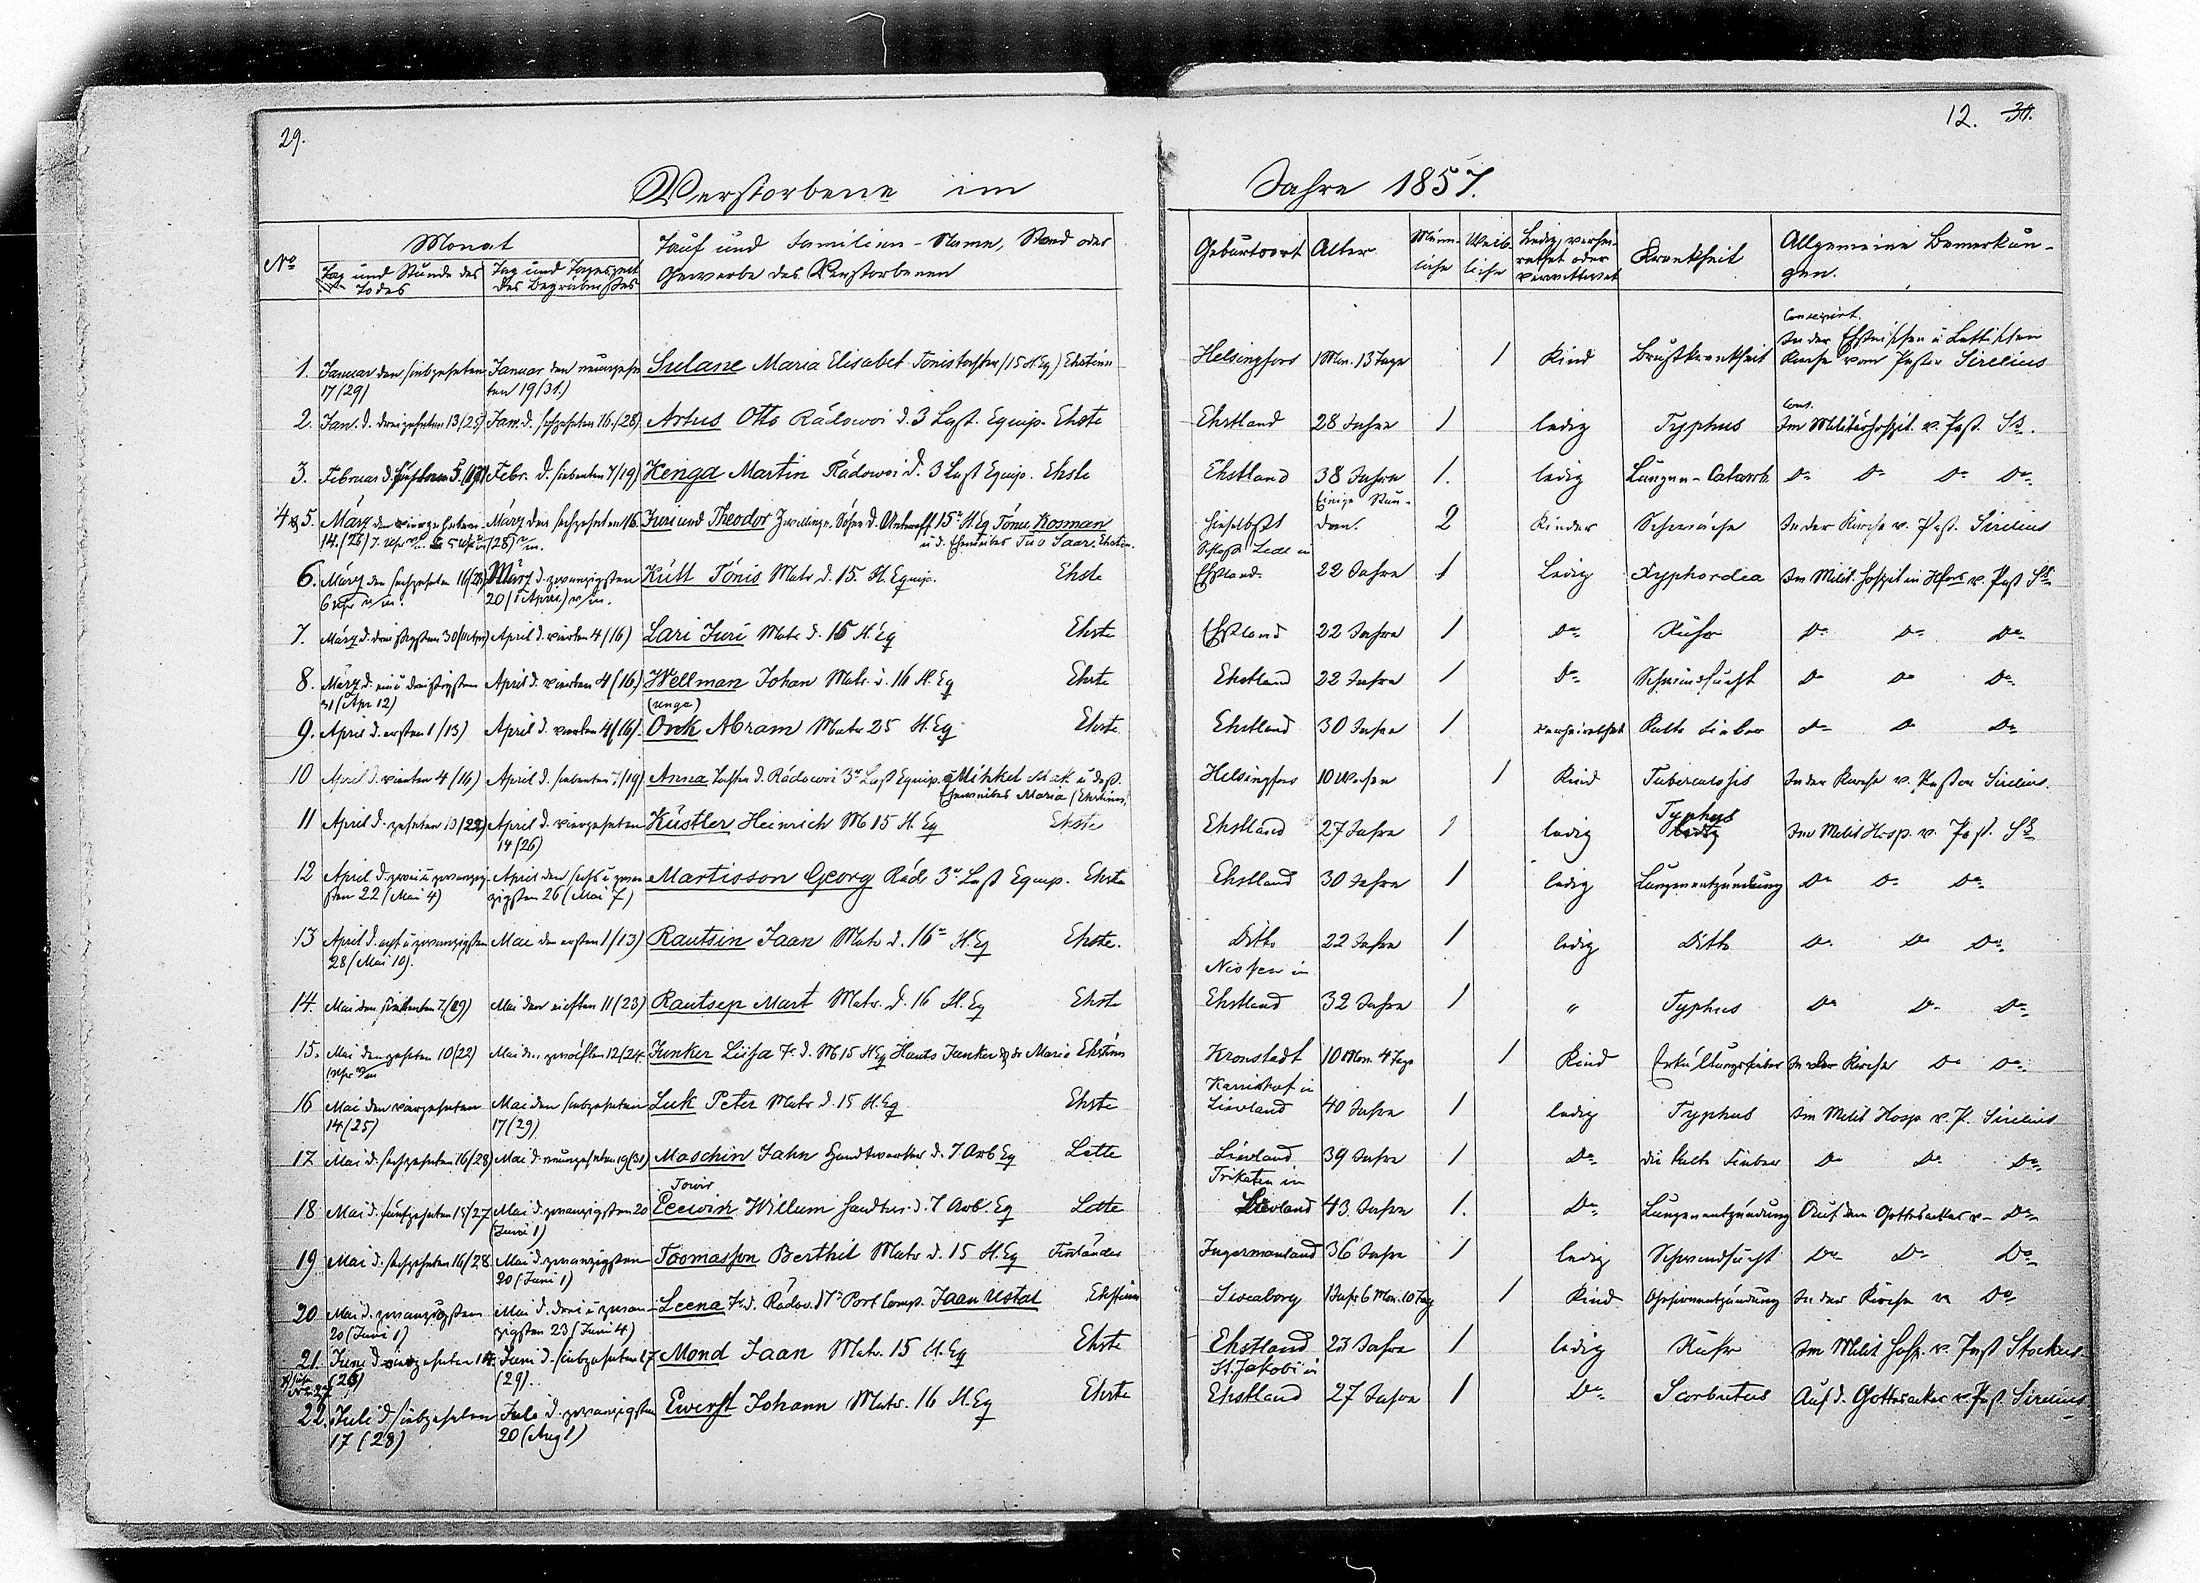 29.
12. 30.
Verstorbene im Jahre 1857.
No Monat Tauf und Familien-Name, Stand oder Geburtsort Alter Männ- Weib- Ledig, verhei- Krankheit Allgemeine Bemerkun-
Tag und Stunde des Tag und Tageszeit Gewerbe des Verstorbenen liche liche rathet oder gen.
Todes des Begräbnißes verwittwet
Conscript.
In der Ehstnischen u Lettischen
1. Januar den siebzehnten Januar den neunzehn Sulane Maria Elisabet Tönistochter (15 H. Eq) Ehstin Helsingfors 1 Mon. 13 Tage 1 Kind Brustkrankheit Kirche vom Pastor Sirelius
17 (29) ten 19 (31.)
Cons.
2. Jan. d. dreizehnten 13 (25) Jan. d. sechzehnten 16. (28) Artus Otto Rädowoi d. 3 Last. Equip. Ehste Ehstland 28 Jahre 1 ledig Typhus Im Militärhospit. v. Past. Ss.
3. Februar d. fünften 5. (17) Febr. d. siebenten 7 (19) Kenga Martin Rädowoi d. 3 Last Equip. Ehste Ehstland 38 Jahre 1. ledig Lungen-Catarrh Do Do Do Do
Einige Stun-
4 & 5. März den vierzehnten März den sechzehnten 16 Juri und Theodor Zwillinge, Söhne d. Unteroff 15 H Eq Tönu Kosman hieselbst den. 2 Kinder Schwäche In der Kirche v. Past. Sirelius
14. (26) 7. Uhr (28) v/m. u d. Eheweibes Saar. Ehstin.
Schloß Leal in
6. März den sechzehnten 16 (28) März d. zwanzigsten Kütt Tönis Matr d. 15. H. Equip. Ehste Ehstland. 22 Jahre 1 Ledig Typhoidea Im Milit. hospit in Hfors v. Past Ss
6 Uhr v/m. 20 (1 April) v/m.
7. März d. dreißigsten 30 (11 Apr) April d. vierten 4 (16) Lari Juri Matr d. 15 H Eq Ehste Ehstland 22 Jahre 1 Do Ruhr Do Do Do
8. März d. ein u dreißigsten April d. vierten 4 (16.) Wellman Johan Matr. d. 16 H. Eq Ehste Ehstland 22 Jahre 1 Do Schwindsucht Do Do Do
31 (Apr 12) (unge)
9. April d. ersten 1 (13) April d. vierten 4 (16). Onk Abram Matr 25 H. Eq Ehste Ehstland 30 Jahre 1 verheirathet Kalte Fieber Do Do Do
10 April d. vierten 4 (16) April d. siebenten 7 (19) Anna Tochter d. Rädowoi 3 Last Equip. Mihkel u deß. Helsingfors 10 Wochen 1 Kind Tuberculosis In der Kirche v. Pastor Sirelius.
Eheweibes Maria (Ehstin)
11 April d. zehnten 10 (22) April d. vierzehnten Küstler Heinrich M 15 H. Eq Ehste Ehstland 27 Jahre 1 ledig Typhus ledig Im Milit Hosp. v. Past. Ss
14 (26)
12 April d. zwei u zwanzig- April den sechs u zwan Martisson Georg Räd. 3 Last Equip. Ehste Ehstland 30 Jahre 1 ledig Lungenentzündung Do Do Do
sten 22 (Mai 4) zigsten 26 (Mai 7)
13 April d. acht u zwanzigsten Mai den ersten 1 (13) Rautsin Jaan Matr d. 16 H. Eq Ehste. Ditto 22 Jahre 1 ledig Ditto Do Do Do
28 (Mai 10).
Nissen in
14. Mai den siebenten 7. (19) Mai den eilften 11 (23) Rautsep Mart Matr. d. 16 H. Eq Ehste Ehstland 32 Jahre 1 " Typhus Do Do Do
15. Mai den zehnten 10 (22) Mai den zwölften 12 (24. Junker Liisa T. d. M 15 H Eq Hants Junker & dr Marie Ehstin Kronstadt 10 Mon. 4 Tage 1 Kind Erkältungsfieber In der Kirche Do Do
Karrishof in
16 Mai den vierzehnten Mai den siebzehnten Luk Peter Matr d. 15 H. Eq Ehste Lievland 40 Jahre 1 ledig Typhus Im Milit Hosp v. P. Sirelius
14. (25) 17 (29)
17 Mai d. sechzehnten 16 (28) Mai d. neunzehnten 19 (31) Maschin Jahn Handtwerker d. 7 Arb Eq Lette Lievland 39 Jahre 1 Do die Kalte Fieber Do Do Do
Trikaten in
18 Mai d. fünfzehnten 15 (27 Mai d. zwanzigsten 20 Willum d. 7 Arb. Eq Lette Lievland 43 Jahre 1. Do Lungenentzündung Auf dem Gottesacker v- Do
(Juni 1)
19 Mai d. sechzehnten 16 (28. Mai d. zwanzigsten Toomasson Berthil Matr d. 15 H. Eq Finländer Ingermanland 36 Jahre 1 ledig Schwindsucht Do Do Do
20 (Juni 1)
20 Mai d. zwanzigsten Mai d. drei u zwan- Leena T. d. Rädow. d 7 Port Comp. Jaan Ustal Ehstin Sweaborg 1 Jahr 6 Mon. 10 Tag 1 Kind In der Kirche v Do
20 (Juni 1) zigsten 23 (Juni 4)
21. Juni d. vierzehnten 14 Juni d. siebzehnten 17 Mond Jaan Matr. 15 H. Eq Ehste Ehstland 23 Jahre 1 ledig Ruhr Im Milit Hosp. v. Past Stockus
(26) (29).
St. Jakobi in
22. Juli d. siebzehnten Juli d. zwanzigsten Ewerst Johann Matr. 16 H. Eq Ehste Ehstland 27 Jahre 1 Do Scorbutus Auf d. Gottesacker v. Past. Sirelius
17 (28) 20 (Aug 1)